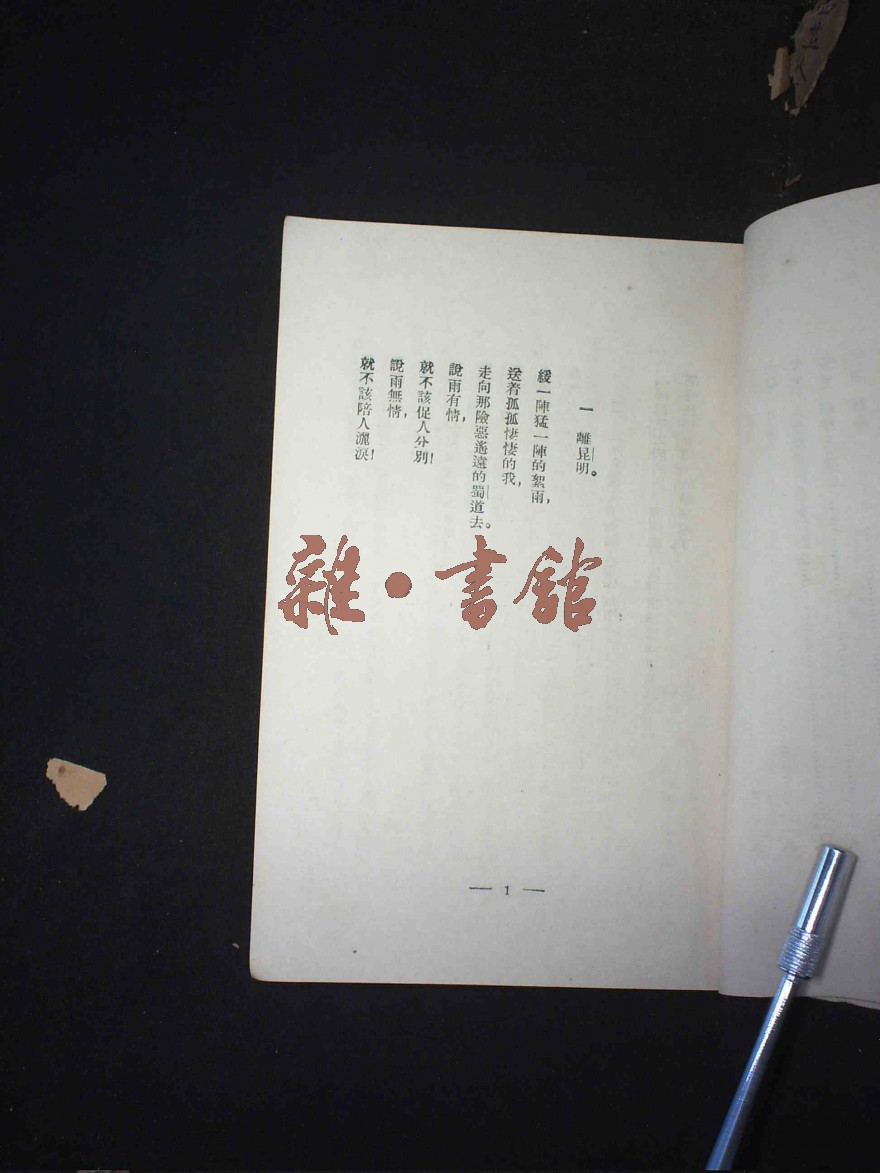 一 離昆明。
緩一陣猛一陣的絮雨，
送着孤孤悽悽的我，
走向那險惡遙遠的蜀道去。
說雨有情，
就不該促人分別！
說雨無情，
就不該陪人灑淚！
雜·書館
— 1 —